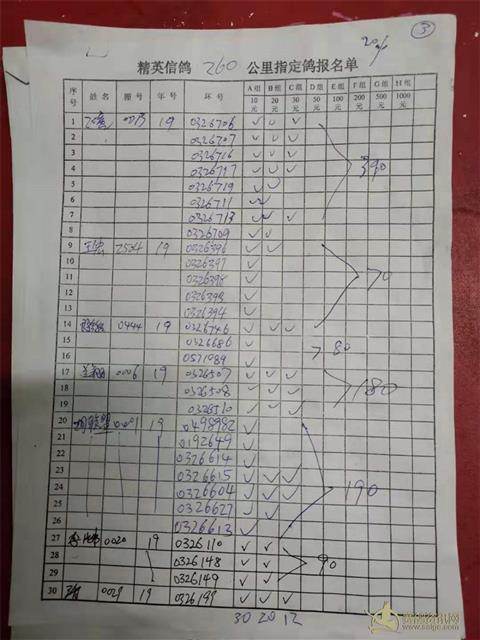 ③
20%
精英信鸽 260 公里指定鸽报名单
序号 姓名 棚号 年号 环号 A组10元 B组20元 C组30元 D组50元 E组100元 F组200元 G组500元 H组1000元
1 19 0326706 ✓ ✓ ✓
2 0326707 ✓ ✓ ✓
3 0326716 ✓ ✓ ✓
4 0326717 ✓ ✓ ✓ 390
5 0326719 ✓ ✓
6 0326711 ✓ ✓
7 0326713 ✓ ✓ ✓
8 0326709 ✓ ✓
9 19 0326396 ✓ ✓
10 0326397 ✓
11 0326398 ✓ 70
12 ✓
13 0326394 ✓
14 0444 19 0326746 ✓ ✓ ✓
15 0326686 ✓ 80
16 0571089 ✓
17 0006 19 0326507 ✓ ✓ ✓
18 0326508 ✓ ✓ ✓ 180
19 0326510 ✓ ✓ ✓
20 0001 19 0498982 ✓
21 0192649 ✓
22 0326614 ✓
23 0326615 ✓ ✓ ✓
24 0326604 ✓ ✓ ✓ 190
25 0326627 ✓ ✓
26 0326613 ✓
27 0020 19 0326110 ✓ ✓
28 0326148 ✓ ✓ 90
29 0326149 ✓ ✓
30 0029 19 0326199 ✓ ✓ ✓
30 20 12